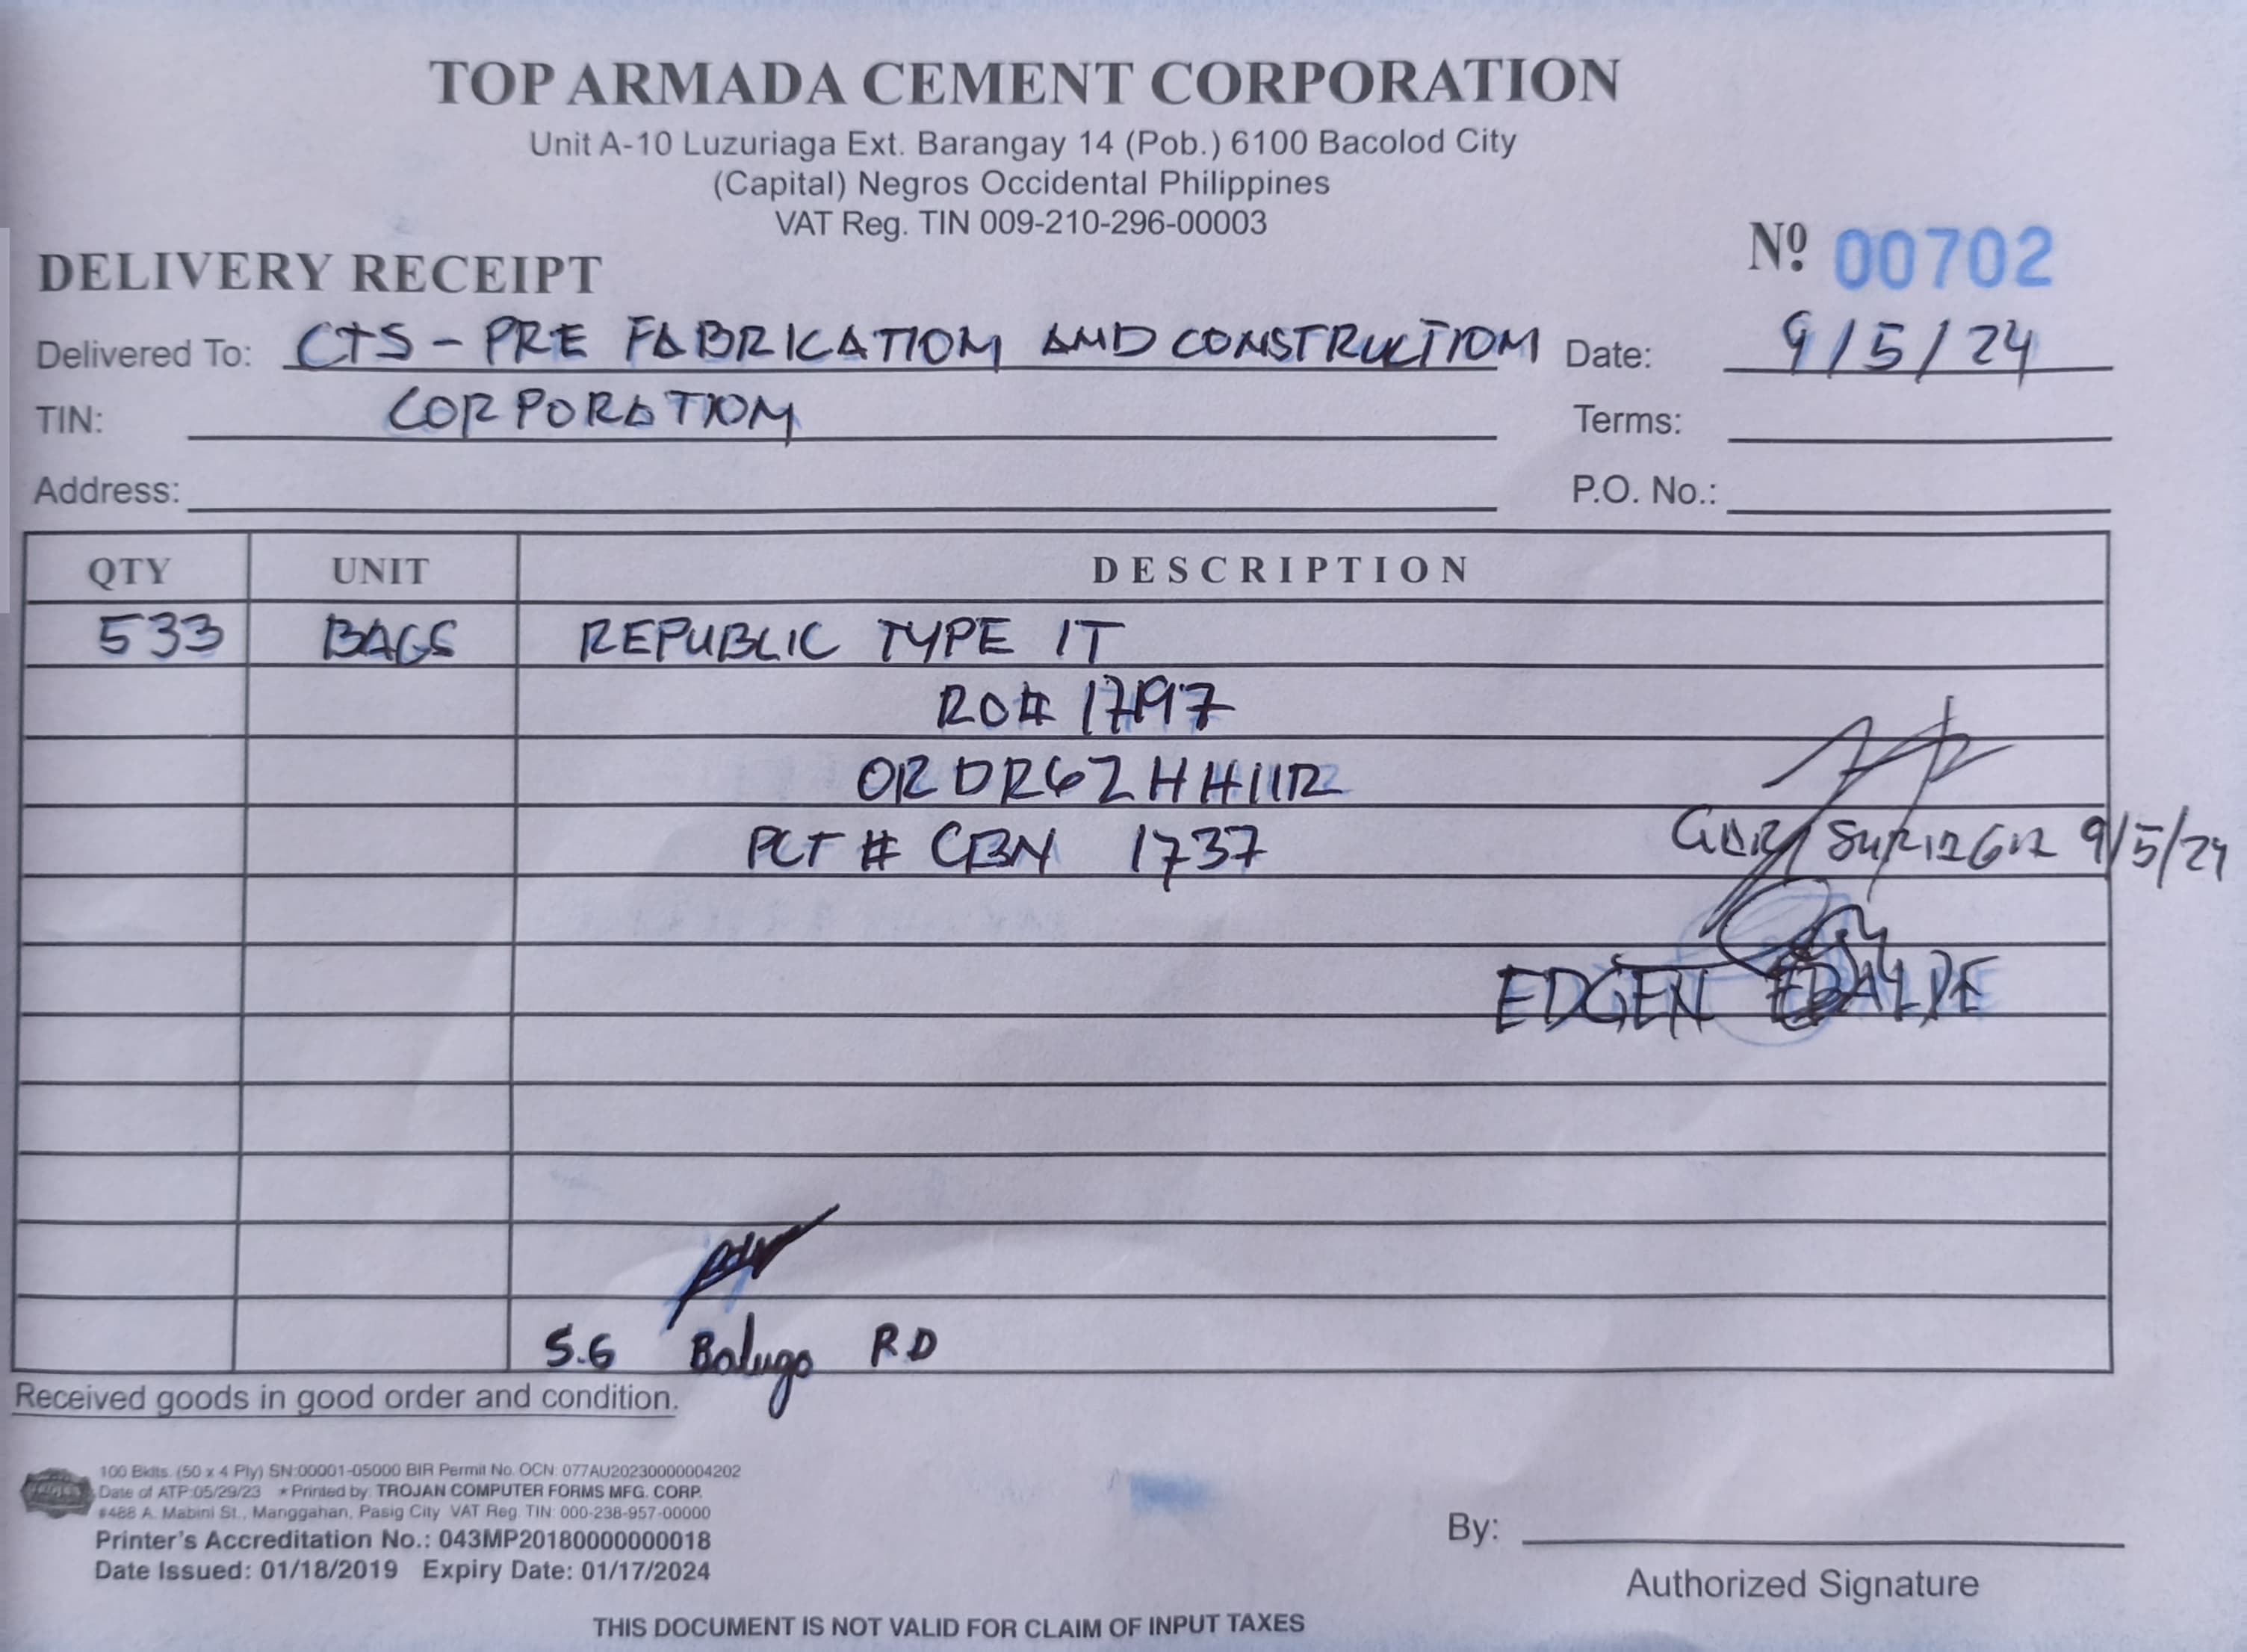 TOP ARMADA CEMENT CORPORATION
Unit A-10 Luzuriaga Ext. Barangay 14 (Pob.) 6100 Bacolod City
(Capital) Negros Occidental Philippines
VAT Reg. TIN 009-210-296-00003
Nº 00702
DELIVERY RECEIPT
Delivered To: CTS - PRE FABRICATION AND CONSTRUCTION Date: 9/5/24
TIN: CORPORATION Terms:
Address: P.O. No.:
QTY UNIT DESCRIPTION
533 BAGS REPUBLIC TYPE 1T
RO# 17197
PLT # CBN 1737
9/5/24
EDGEN
S.G Balugo RD
Received goods in good order and condition.
100 Bklts. (50 x 4 Ply) SN:00001-05000 BIR Permit No. OCN: 077AU20230000004202
Date of ATP:05/29/23 *Printed by: TROJAN COMPUTER FORMS MFG. CORP.
#488 A. Mabini St., Manggahan, Pasig City VAT Reg. TIN: 000-238-957-00000
Printer's Accreditation No.: 043MP20180000000018
Date Issued: 01/18/2019 Expiry Date: 01/17/2024
By:
Authorized Signature
THIS DOCUMENT IS NOT VALID FOR CLAIM OF INPUT TAXES